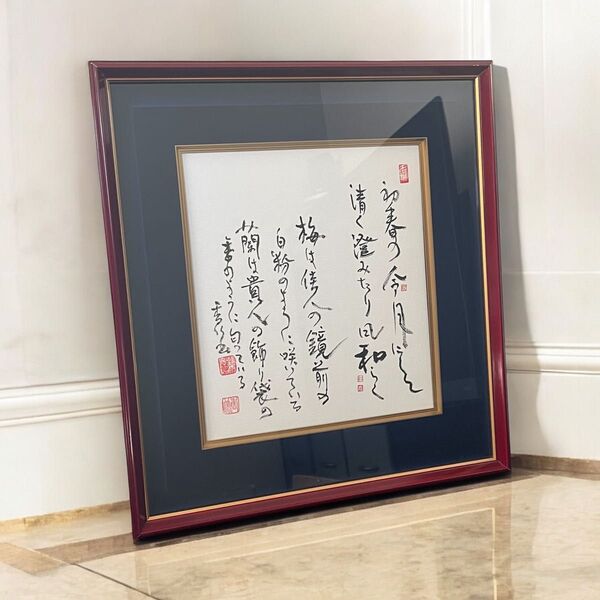 初春の令月にして
清く澄みたり風和らく
梅は佳人の鏡前の
白粉のように咲いている
蘭は貴人の飾り袋の
香のように匂っている